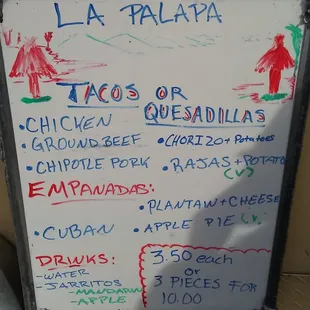 LA PALAPA
TACOS OR
QUESADILLAS
•CHICKEN
•GROUND BEEF
•CHORIZO + Potatoes
•CHIPOTLE PORK
•RAJAS + POTATO
(V)
EMPANADAS:
•PLANTAIN + CHEESE
•CUBAN
•APPLE PIE (V)
DRINKS:
-WATER
-JARRITOS
-MANDARIN
-APPLE
3.50 each
or
3 PIECES FOR
10.00